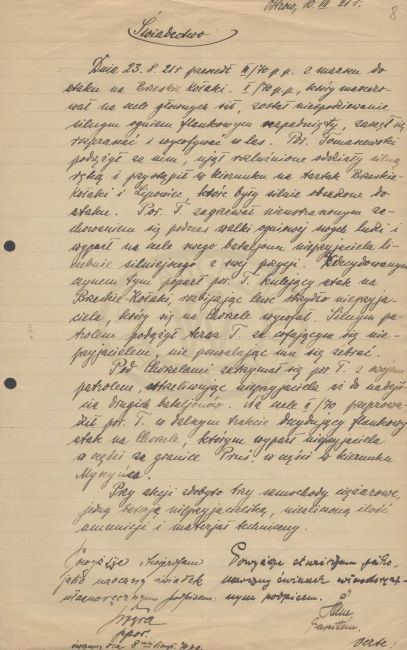 10. III. 21 r.
8
Świadectwo
Dnia 23.8.21 r przeszedł II/70 p.p. z marszu do
ataku na Brzeskie Kołaki. I/70 p.p., który maszero-
wał na czele głównych sił, został niespodziewanie
silnym ogniem flankowym napadnięty, zaczął się
rozpraszać i wycofywać w las. Por. Tomaszewski
podążył za nim, ujął rozluźnione oddziały silną
ręką i w kierunku na Brzeskie-
Kołaki i Lipowiec, które były silnie obsadzone do
ataku. Por. T. zagrzewał nieustraszonym za-
chowaniem się podczas walki ogniowej swych ludzi i
wyparł na czele swego bataljonu nieprzyjaciela li-
czebnie silniejszego z swej pozycji. Zdecydowanym
czynem tym poparł por. T. kulejący atak na
Brzeskie-Kołaki, rozbijając lewe skrzydło nieprzyja-
ciela, który się na Chorzele wycofał. Silnym pa-
trolem podążył teraz T. za cofającym się nie-
przyjacielem, nie pozwalając mu się zebrać.
Pod Chorzelami zatrzymał się por T. z swym
patrolem, ostrzeliwując nieprzyjaciela aż do nadejś-
cia drugich bataljonów. Na czele II/70 przeprowa-
dził por. T. w dalszym trakcie decydujący flankowy
atak na Chorzele, którym wyparł nieprzyjaciela
w części za granicę Prus, w części w kierunku
Myszyńca.
Przy akcji zdobyto trzy samochody ciężarowe,
jedną baterję nieprzyjacielską, niezliczoną ilość
amunicji i materjał techniczny.
Powyższe stwierdzam
jako naoczny świadek
własnoręcznym podpisem.
ppor.
Powyższe stwierdzam jako
naoczny świadek własnoręcz-
nym podpisem.
Kapitan.
verte!